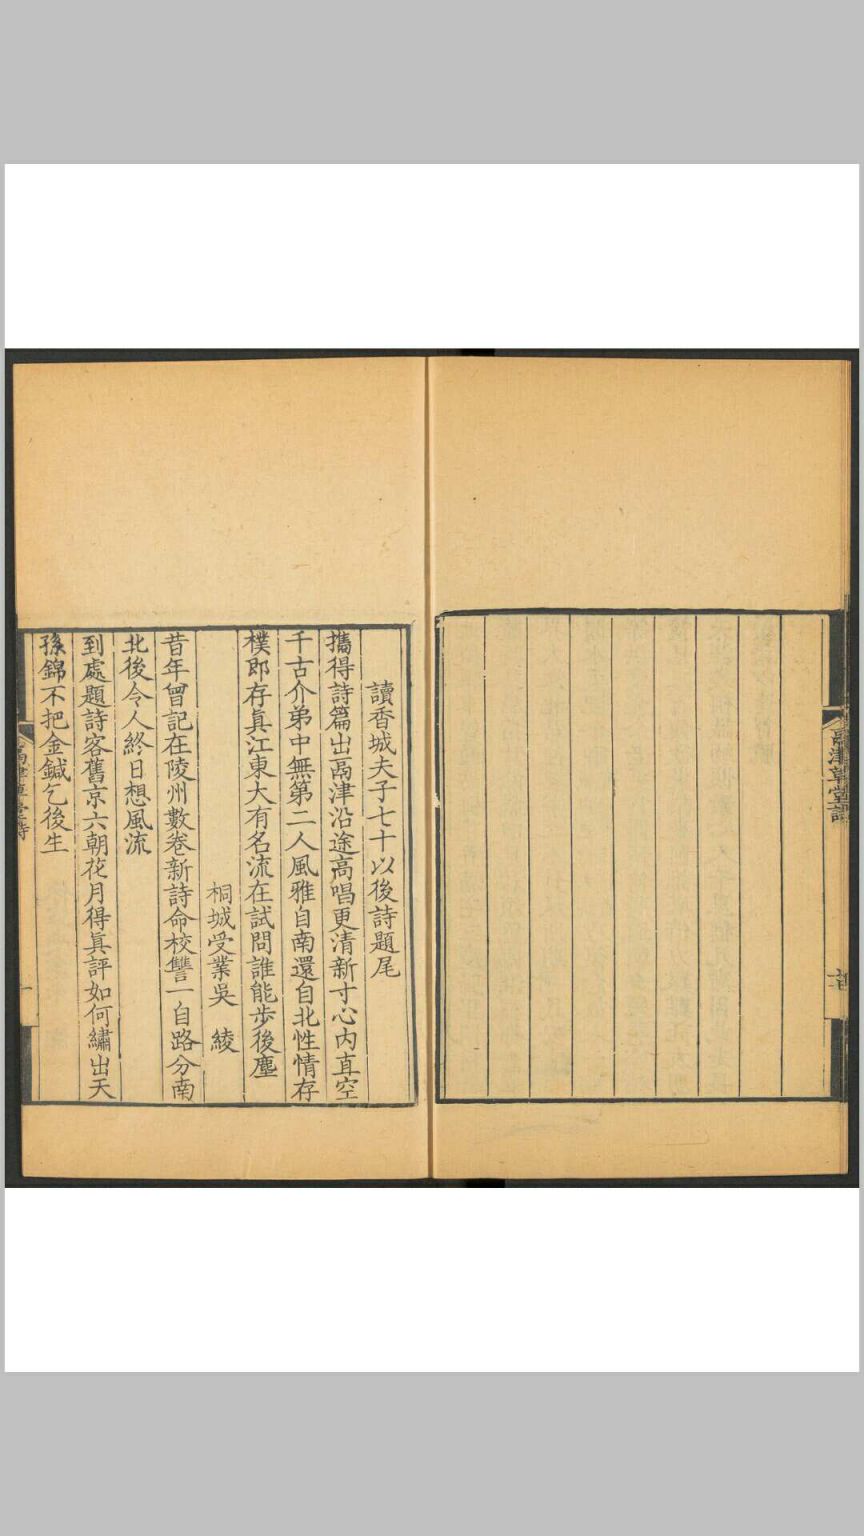 讀香城夫子七十以後詩題尾
攜得詩篇出鬲津沿途高唱更清新寸心內直空
千古介弟中無第二人風雅自南還自北性情存
樸即存真江東大有名流在試問誰能步後塵
桐城受業吳綾
昔年曾記在陵州數卷新詩命校讐一自路分南
北後令人終日想風流
到處題詩客舊京六朝花月得真評如何繡出天
孫錦不把金鍼乞後生